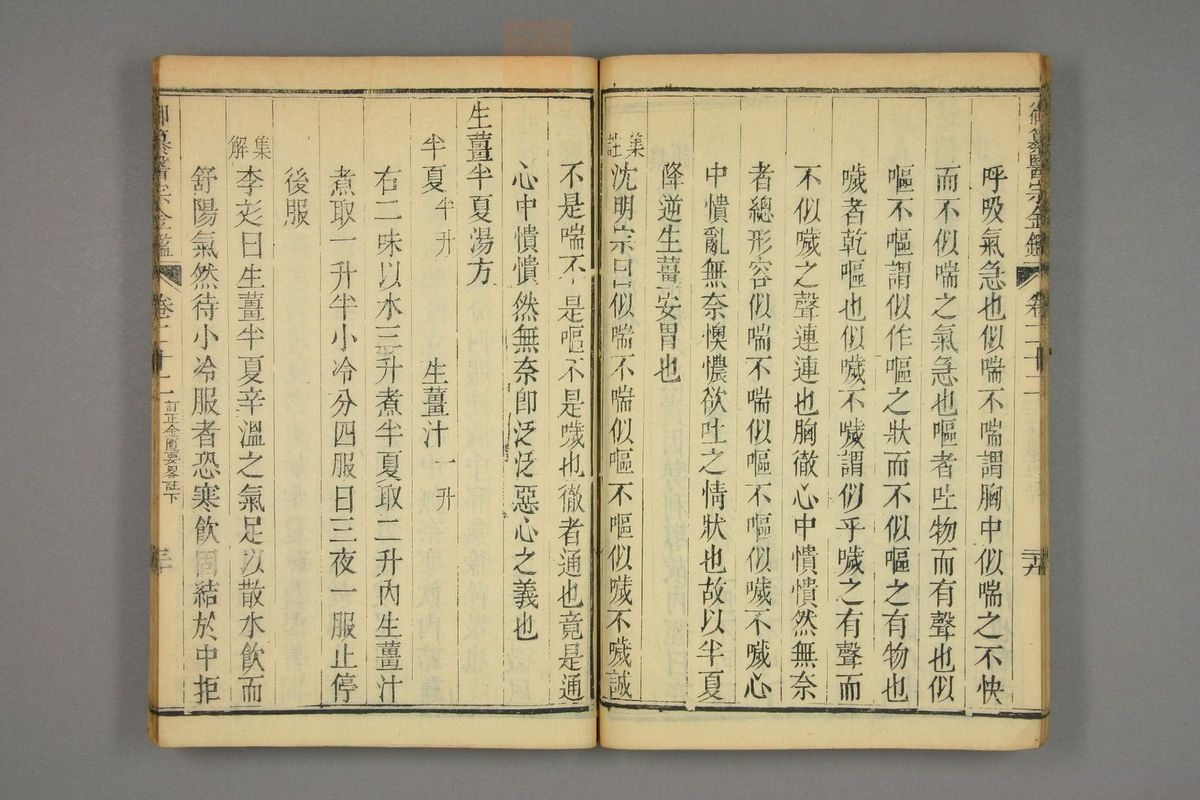 御纂醫宗金鑑
卷二十二
呼吸氣急也似喘不喘謂胸中似喘之不快
而不似喘之氣急也嘔者吐物而有聲也似
嘔不嘔謂似作嘔之狀而不似嘔之有物也
噦者乾嘔也似噦不噦謂似乎噦之有聲而
不似噦之聲連連也胸徹心中憒憒然無奈
者總形容似喘不喘似嘔不嘔似噦不噦心
中憒亂無奈懊憹欲吐之情狀也故以半夏
降逆生薑安胃也
集註
沈明宗曰似喘不喘似嘔不嘔似噦不噦誠
不是喘不是嘔不是噦也徹者通也竟是通
心中憒憒然無奈卽泛泛惡心之義也
生薑半夏湯方
半夏半升 生薑汁一升
右二味以水三升煮半夏取二升內生薑汁
煮取一升半小冷分四服日三夜一服止停
後服
集解
李彣曰生薑半夏辛溫之氣足以散水飲而
舒陽氣然待小冷服者恐寒飲固結於中拒
御纂醫宗金鑑
卷二十二
訂正金匱要畧註下
三十